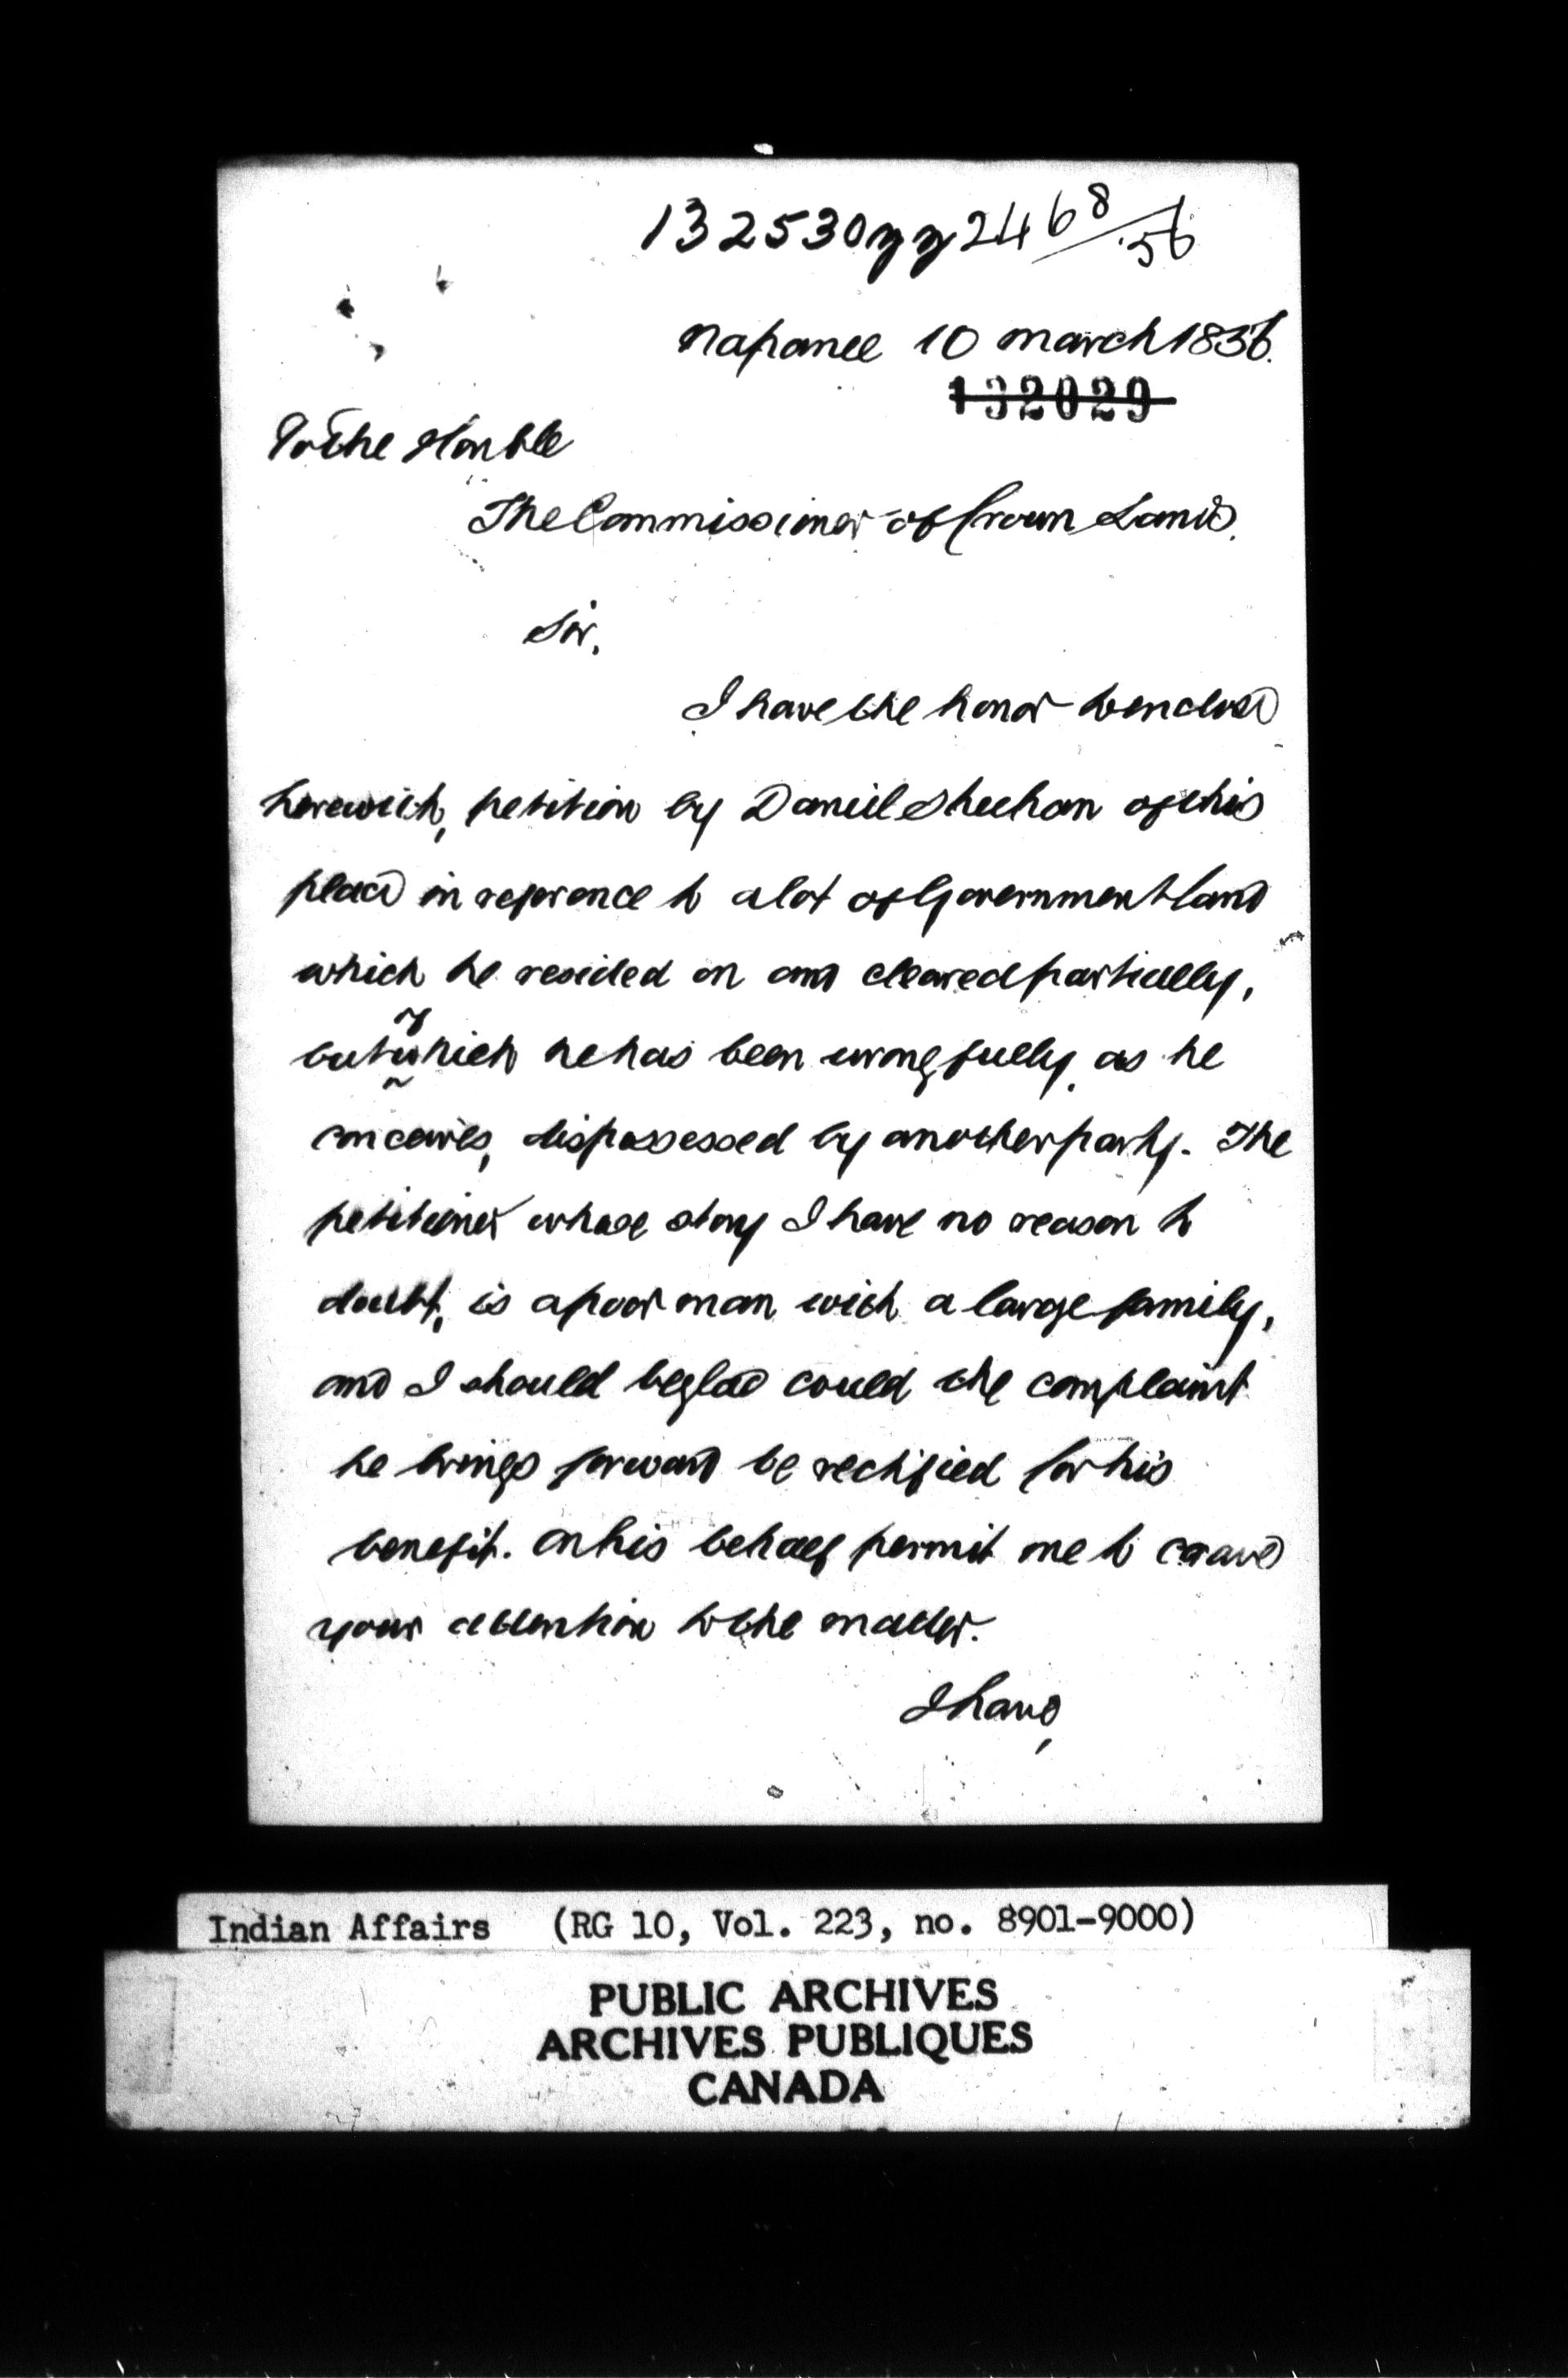 132530yy 2468/56
Napanee 10 March 1856.
132029
To the Honble
The Commissioner of Crown Lands.
Sir,
I have the honor to enclose
herewith, petition by Daniel Sheehan of this
place in reference to a lot of Government land
which he resided on and cleared partially,
but of which he has been wrongfully, as he
conceives, dispossessed by another party. The
petitioner whose story I have no reason to
doubt, is a poor man with a large family,
and I should be glad could the complaint
he brings forward be rectified for his
benefit. On his behalf permit me to crave
your attention to the matter.
I have,
Indian Affairs (RG 10, Vol. 223, no. 8901-9000)
PUBLIC ARCHIVES
ARCHIVES PUBLIQUES
CANADA